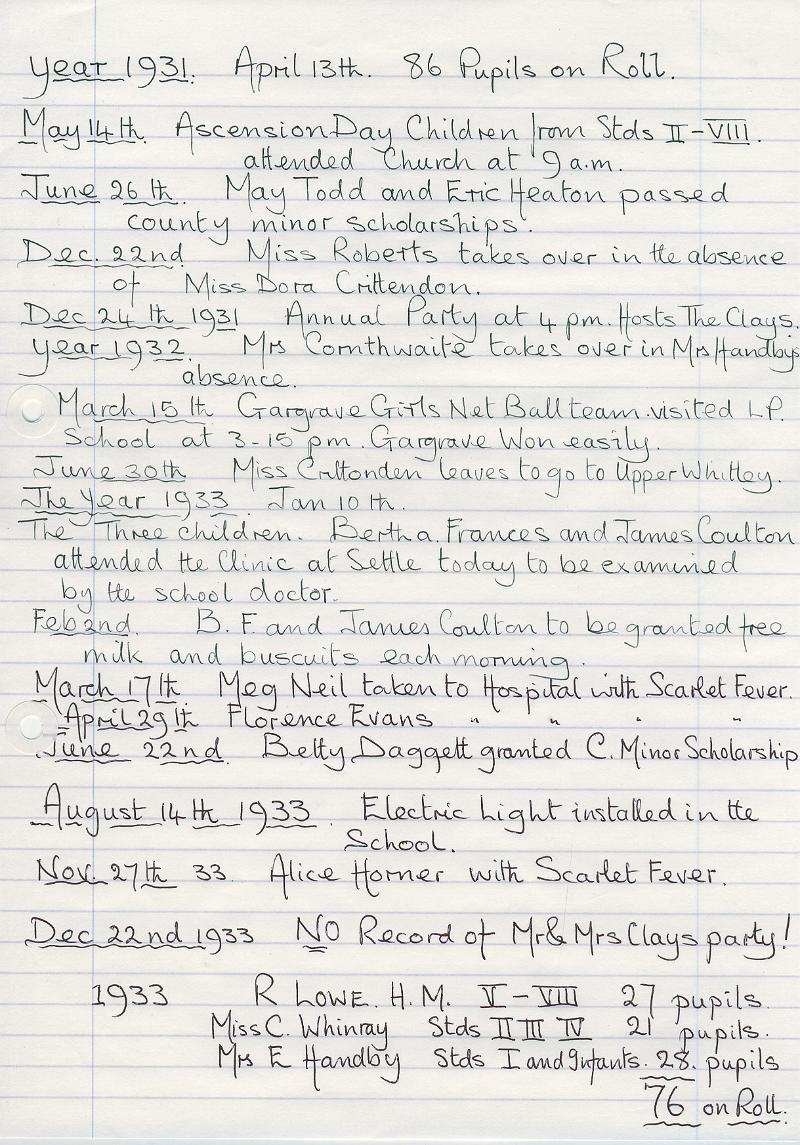 Year 1931. April 13th. 86 Pupils on Roll.
May 14th. Ascension Day Children from Stds II-VIII.
attended Church at 9 a.m.
June 26th. May Todd and Eric Heaton passed
county minor scholarships.
Dec. 22nd Miss Roberts takes over in the absence
of Miss Dora Crittendon.
Dec 24th 1931 Annual Party at 4 pm. Hosts The Clays.
Year 1932. Mrs Cornthwaite takes over in Mrs Handbys
absence.
March 15th Gargrave Girls Net Ball team visited L.P.
School at 3-15 pm. Gargrave Won easily.
June 30th Miss Crittonden leaves to go to Upper Whitley.
The Year 1933 Jan 10th.
The Three children. Bertha. Frances and James Coulton
attended the Clinic at Settle today to be examined
by the school doctor.
Feb 2nd. B. F. and James Coulton to be granted free
milk and buscuits each morning.
March 17th Meg Neil taken to Hospital with Scarlet Fever.
April 29th Florence Evans " " " "
June 22nd. Betty Daggett granted C. Minor Scholarship
August 14th 1933. Electric Light installed in the
School.
Nov. 27th 33 Alice Horner with Scarlet Fever.
Dec 22nd 1933 NO Record of Mr & Mrs Clays party!
1933 R LOWE. H.M. V-VIII 27 pupils.
Miss C. Whinray Stds II III IV 21 pupils.
Mrs E Handby Stds I and Infants. 28. pupils
76 on Roll.